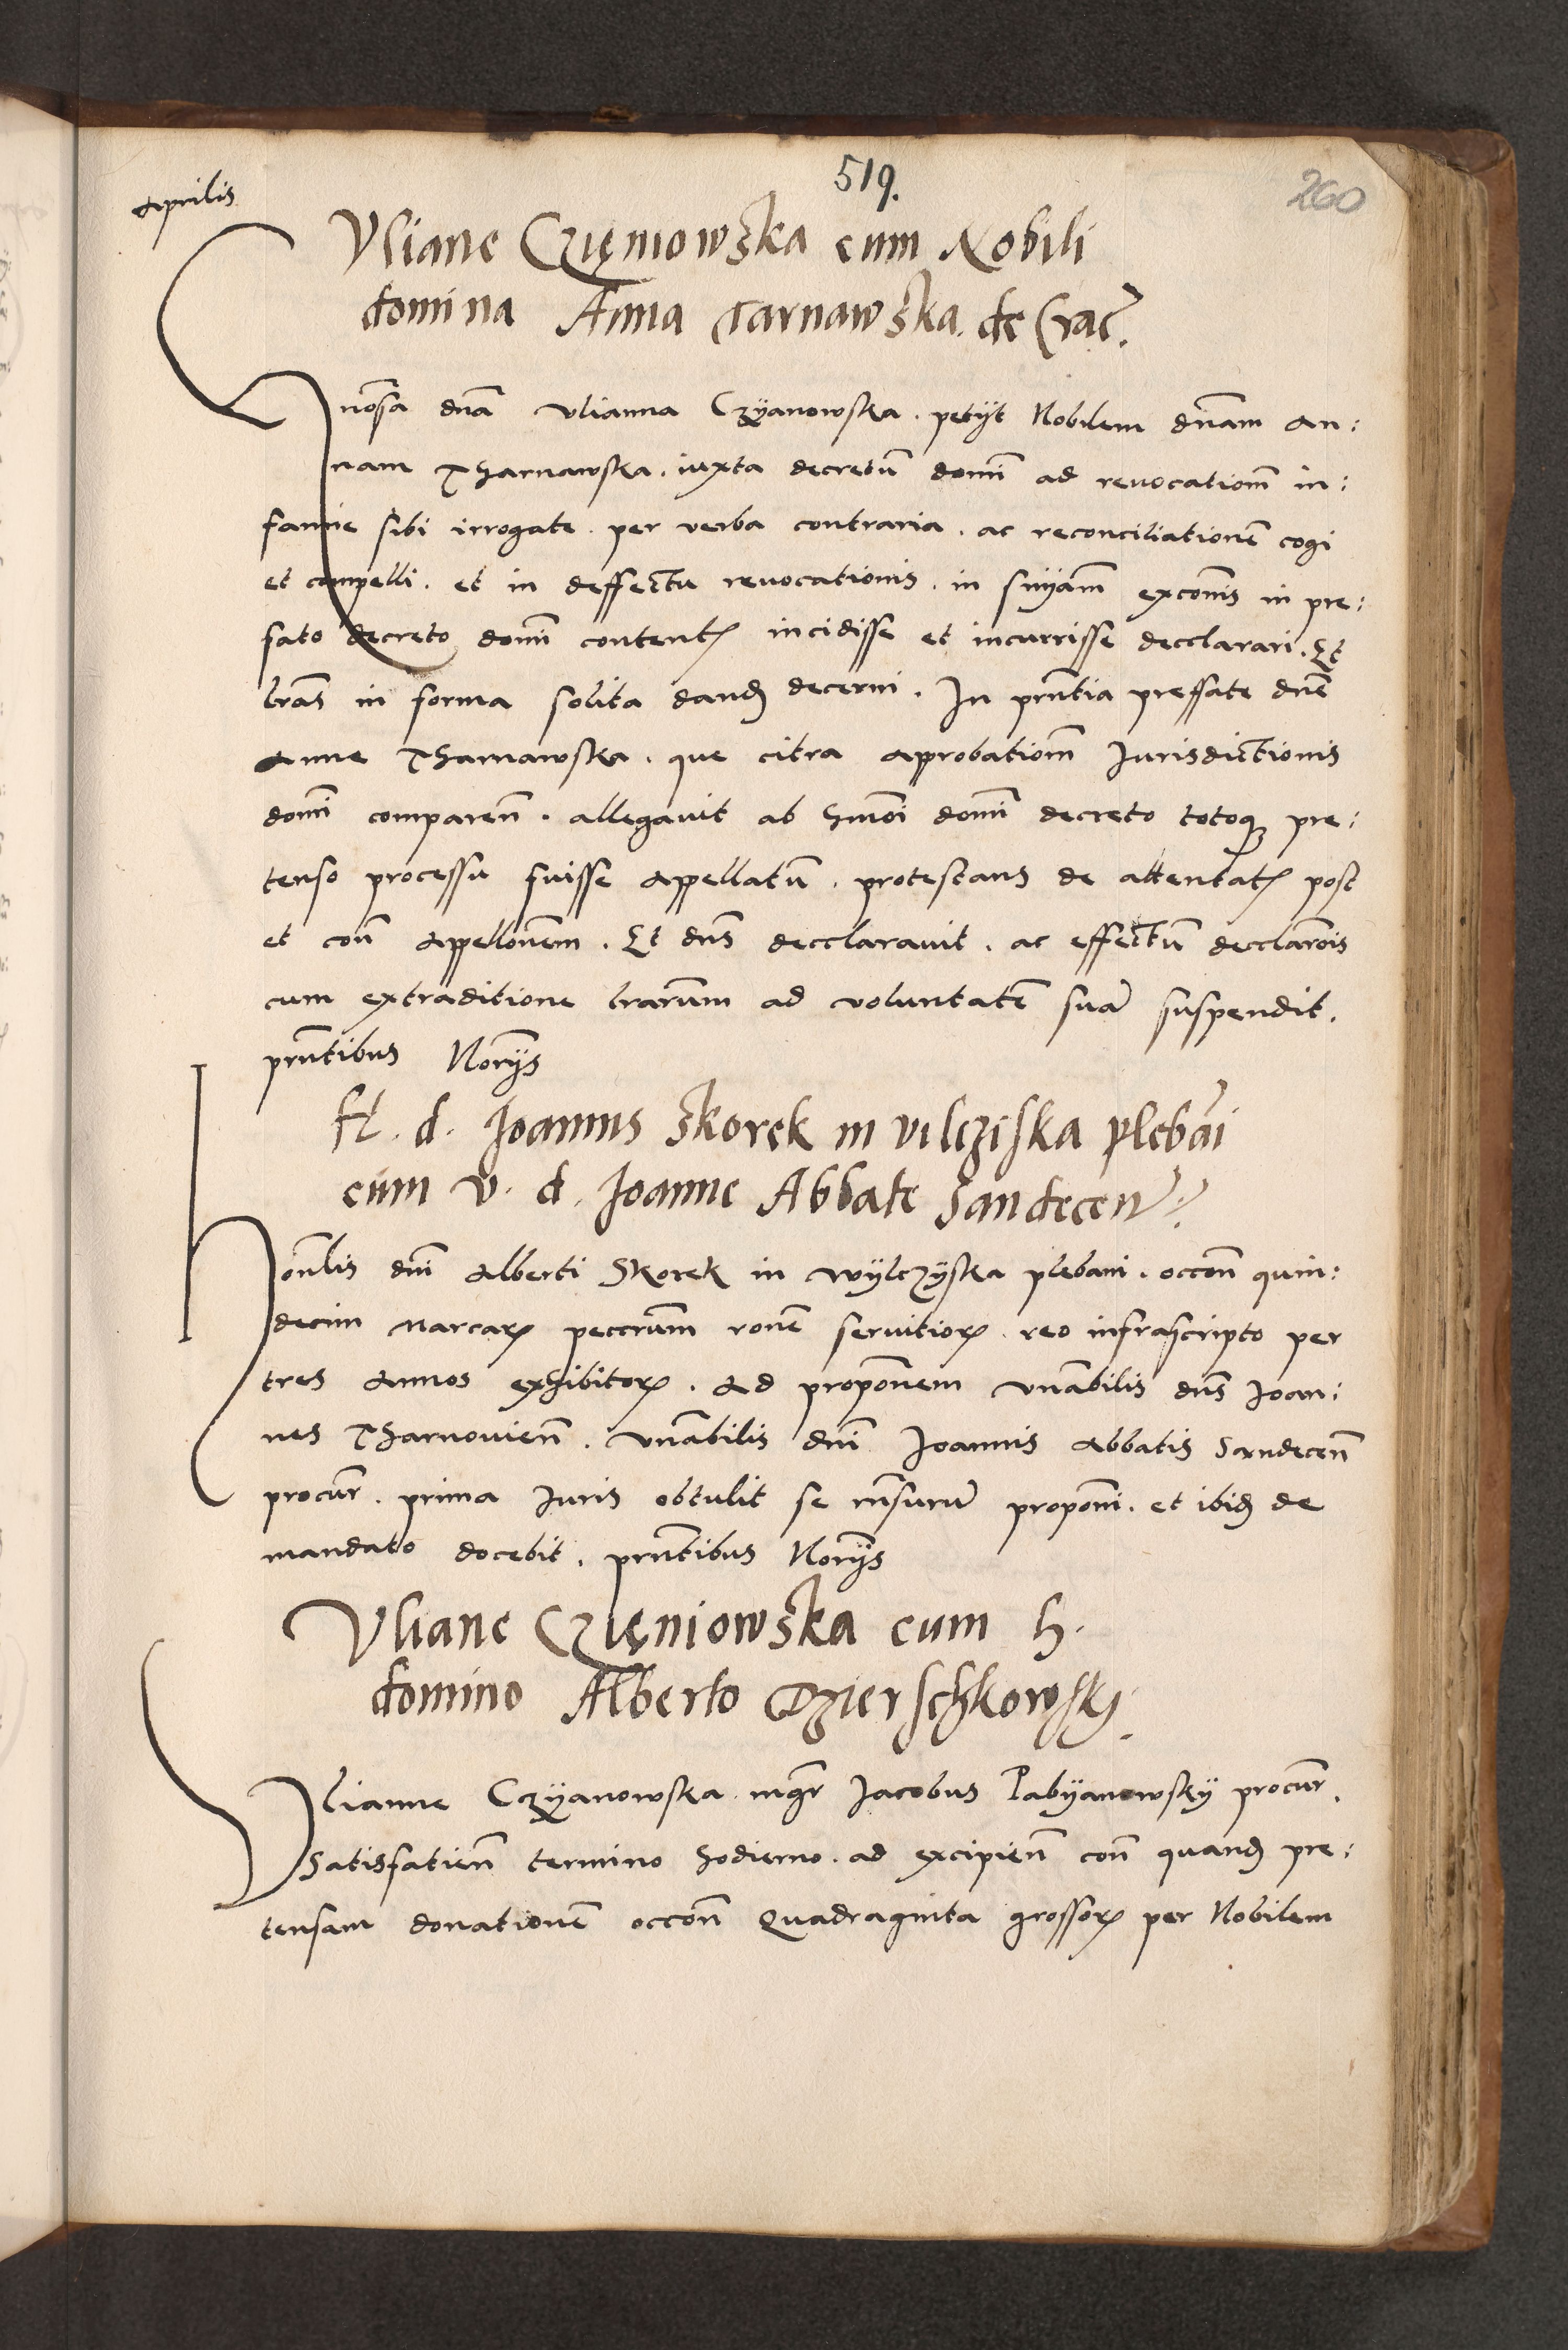 519.
260
Aprilis
Vliane Czięniowska cum Nobili
domina Anna Tarnawska de Crac̃.
Gnõsa dña Vlianna Czÿanowska. petÿt Nobilem dñam An:
nam Tharnawska. iuxta decretũ domĩ ad reuocationẽ in:
famie sibi irrogate per verba contraria. ac reconciliationẽ cogi
et compelli. et in deffectu reuocationis. in snÿam̃ excom̃is in pre:
fato decreto domĩ content̃ incidisse et incurrisse decclarari. Et
lrãs in forma solita dand̃ decerni. In pñtia preffate dñe
Anne Tharnawska. que citra Aprobationẽ Jurisdictionis
domĩ compareñ. allegauit ab hm̃oi domĩ decreto totoq̃ pre:
tenso processu fuisse Appellatũ. protestans de attentat̃ post
et coñ Appellõnem. Et dñs decclarauit. ac effectũ decclarõis
cum extraditione lrãrum ad voluntatẽ suã suspendit.
pñtibus Norijs
H. d. Joannis Skorek in vilcziska plebãi
cum v. d. Joanne Abbate Sandecen̄
Honlis dñi Alberti Skorek in Wÿlczÿska plebani. occoñ quin:
decim marcar̃ peccr̃um ronẽ seruitior̃ reo infrascripto per
tres Annos exhibitor̃. Ad propõnem Vnãbilis dñs Joan:
nes Tharnouieñ. Vnãbilis dñi Joannis Abbatis Sandeceñ
procur̃. prima Juris obtulit se rñsurũ propõni. et ibid̃ de
mandato docebit. pñtibus Norijs
Vliane Czięniowska cum h.
domino Alberto Dzierschkowskj
Vlianne Czÿanowska mgr̃ Jacobus Pabÿanowskÿ procur̃.
Satisfatieñ termino hodierno. ad excipieñ coñ quand̃ pre:
tensam donationẽ occoñ Quadraginta grossor̃ per Nobilem